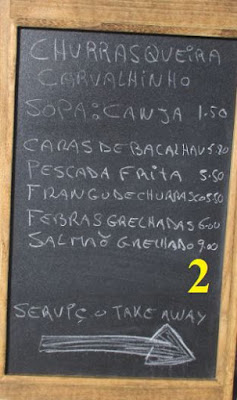 CHURRASQUEIRA
CARVALHINHO
SOPA: CANJA 1.50
CARAS DE BACALHAU 5.80
PESCADA FRITA 5.50
FRANGO DE CHURRASCO 5.50
FEBRAS GRELHADAS 6.00
SALMAÕ GRELHADO 9.00
2
SERVIÇO TAKE AWAY